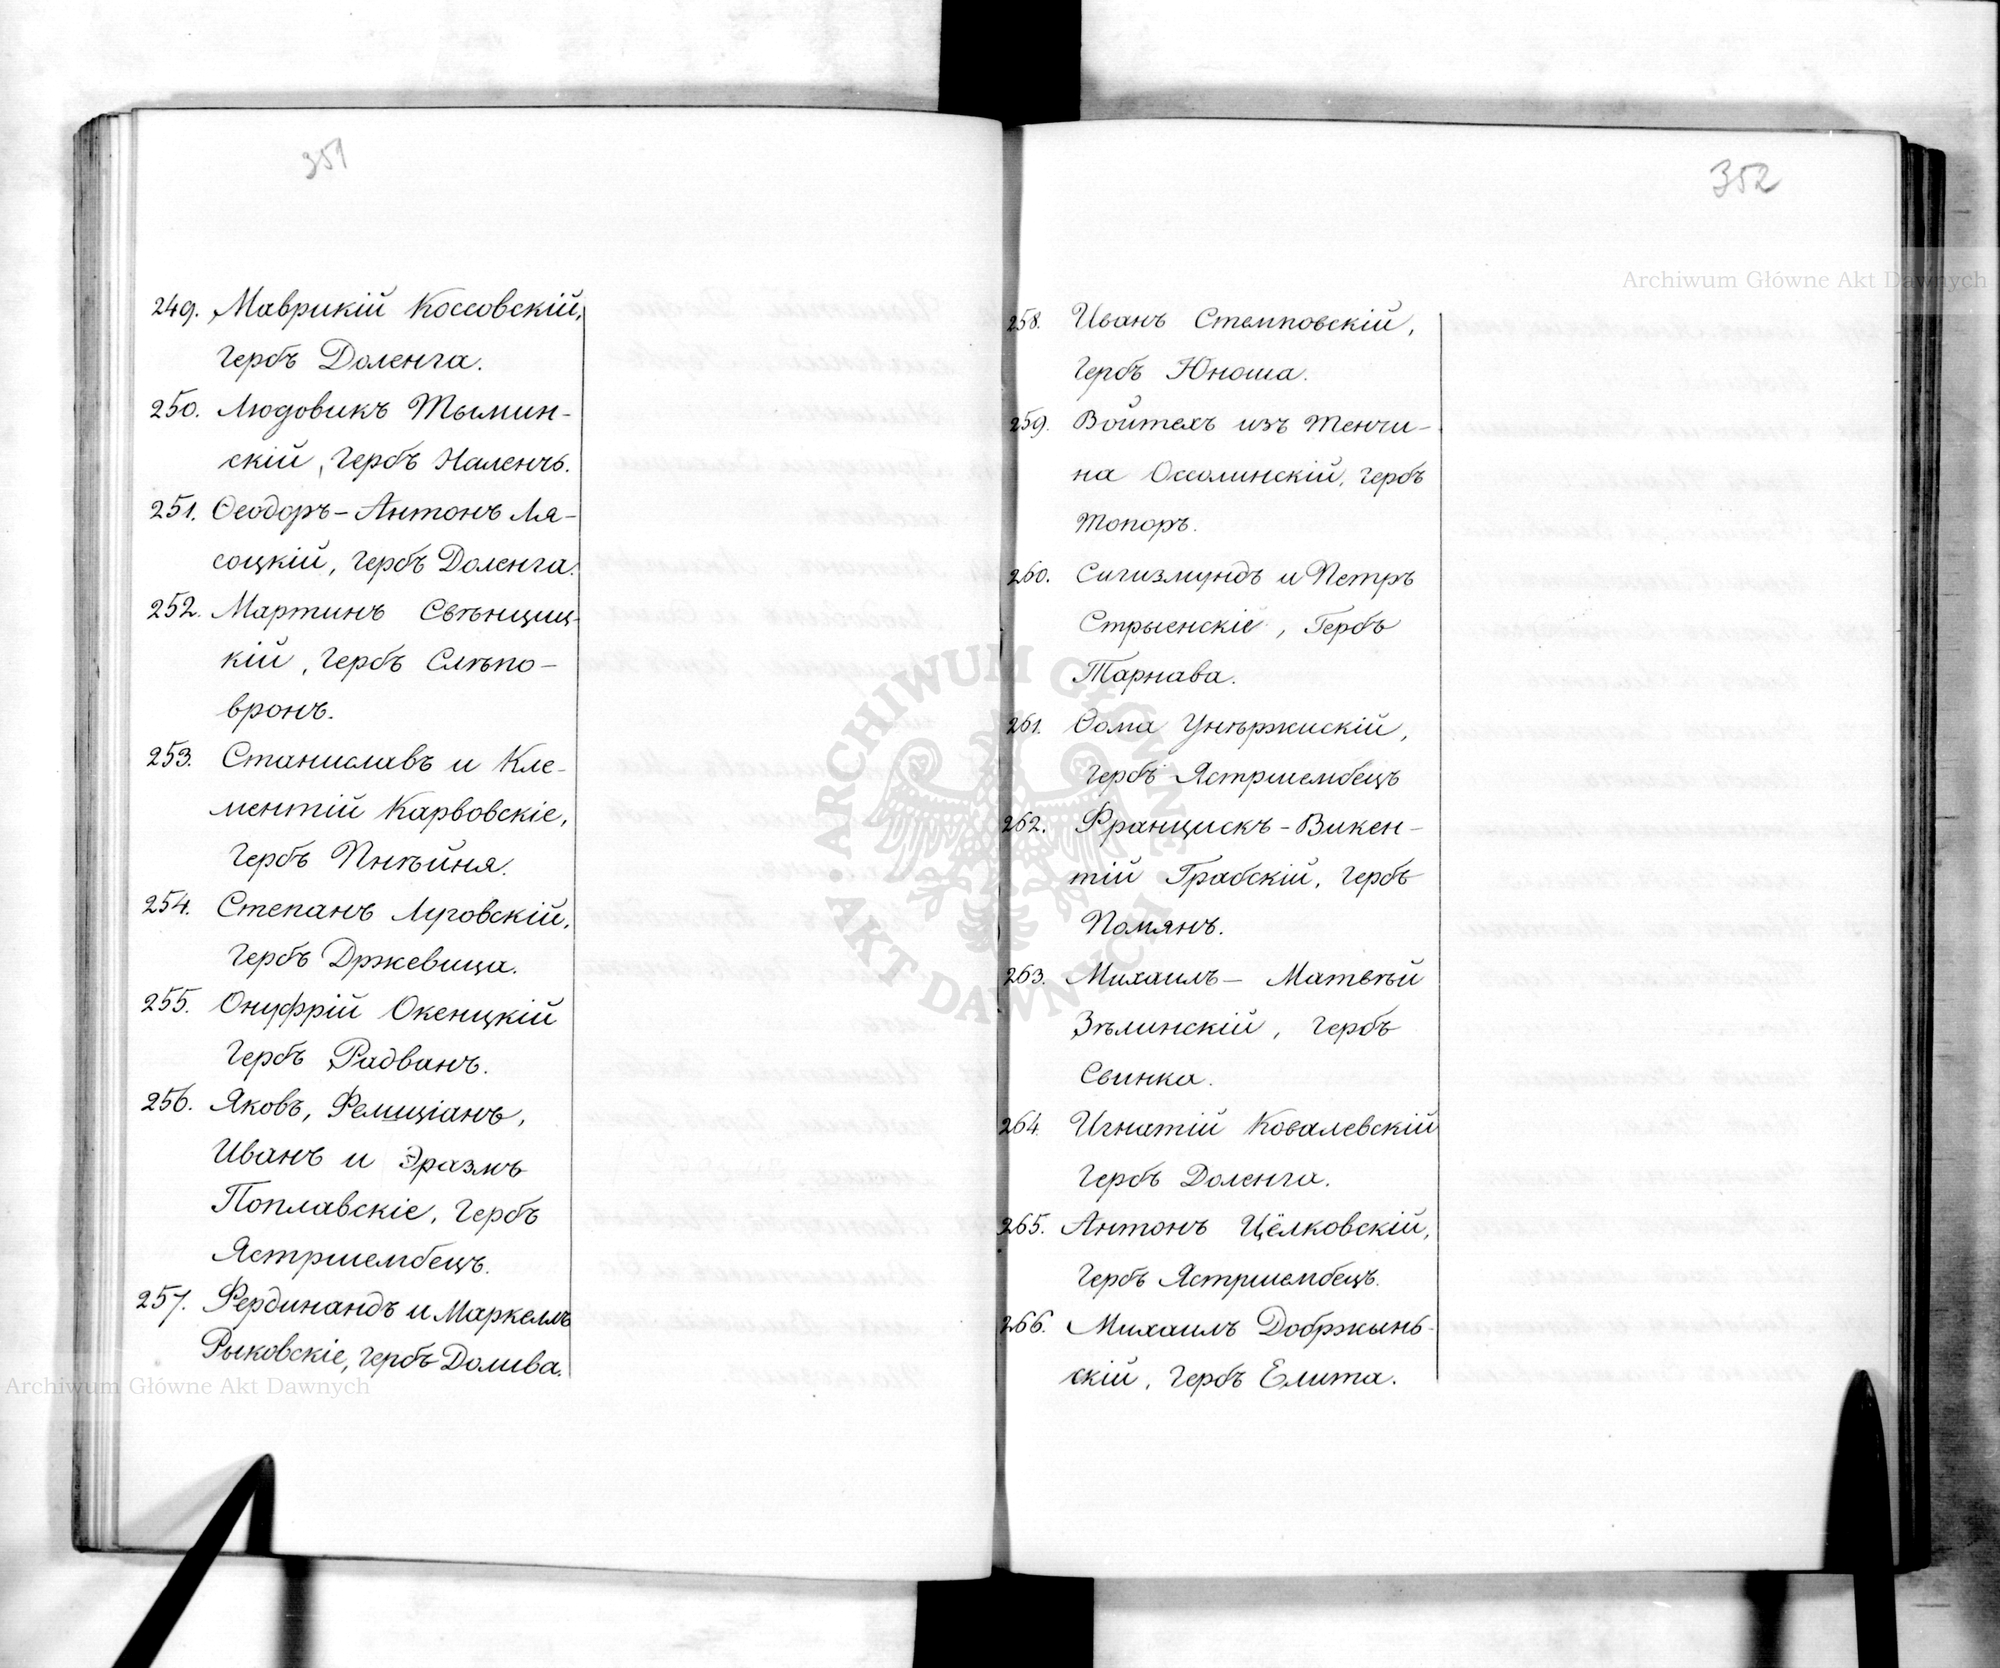 351
249. Маврикій Коссовскій,
гербъ Доленга.
250. Людовикъ Тымин-
скій, гербъ Наленчъ.
251. Ѳеодоръ-Антонъ Ля-
соцкій, гербъ Доленга.
252. Мартинъ Свѣнциц-
кій, гербъ Слѣпо-
вронъ.
253. Станиславъ и Кле-
ментій Карвовскіе,
гербъ Пнѣйня.
254. Степанъ Луговскій,
гербъ Држевица.
255. Онуфрій Окенцкій
гербъ Радванъ.
256. Яковъ, Фелиціанъ,
Иванъ и Эразмъ
Поплавскіе, гербъ
Ястршембецъ.
257. Фердинандъ и Маркеллъ
Рыковскіе, гербъ Долива.
Archiwum Główne Akt Dawnych
352
Archiwum Główne Akt Dawnych
258. Иванъ Стемповскій,
гербъ Юноша.
259. Войтехъ изъ Тенчи-
на Оссолинскій, гербъ
Топоръ.
260. Сигизмундъ и Петръ
Стрыенскіе, Гербъ
Тарнава.
261. Ѳома Унѣржискій,
гербъ Ястршембецъ
262. Францискъ-Викен-
тій Грабскій, гербъ
Помянъ.
263. Михаилъ- Матвѣй
Зѣлинскій, гербъ
Свинка.
264. Игнатій Ковалевскій
гербъ Доленга.
265. Антонъ Цёлковскій,
гербъ Ястршембецъ.
266. Михаилъ Добржынь-
скій, гербъ Елита.
ARCHIWUM GŁÓWNE AKT DAWNYCH